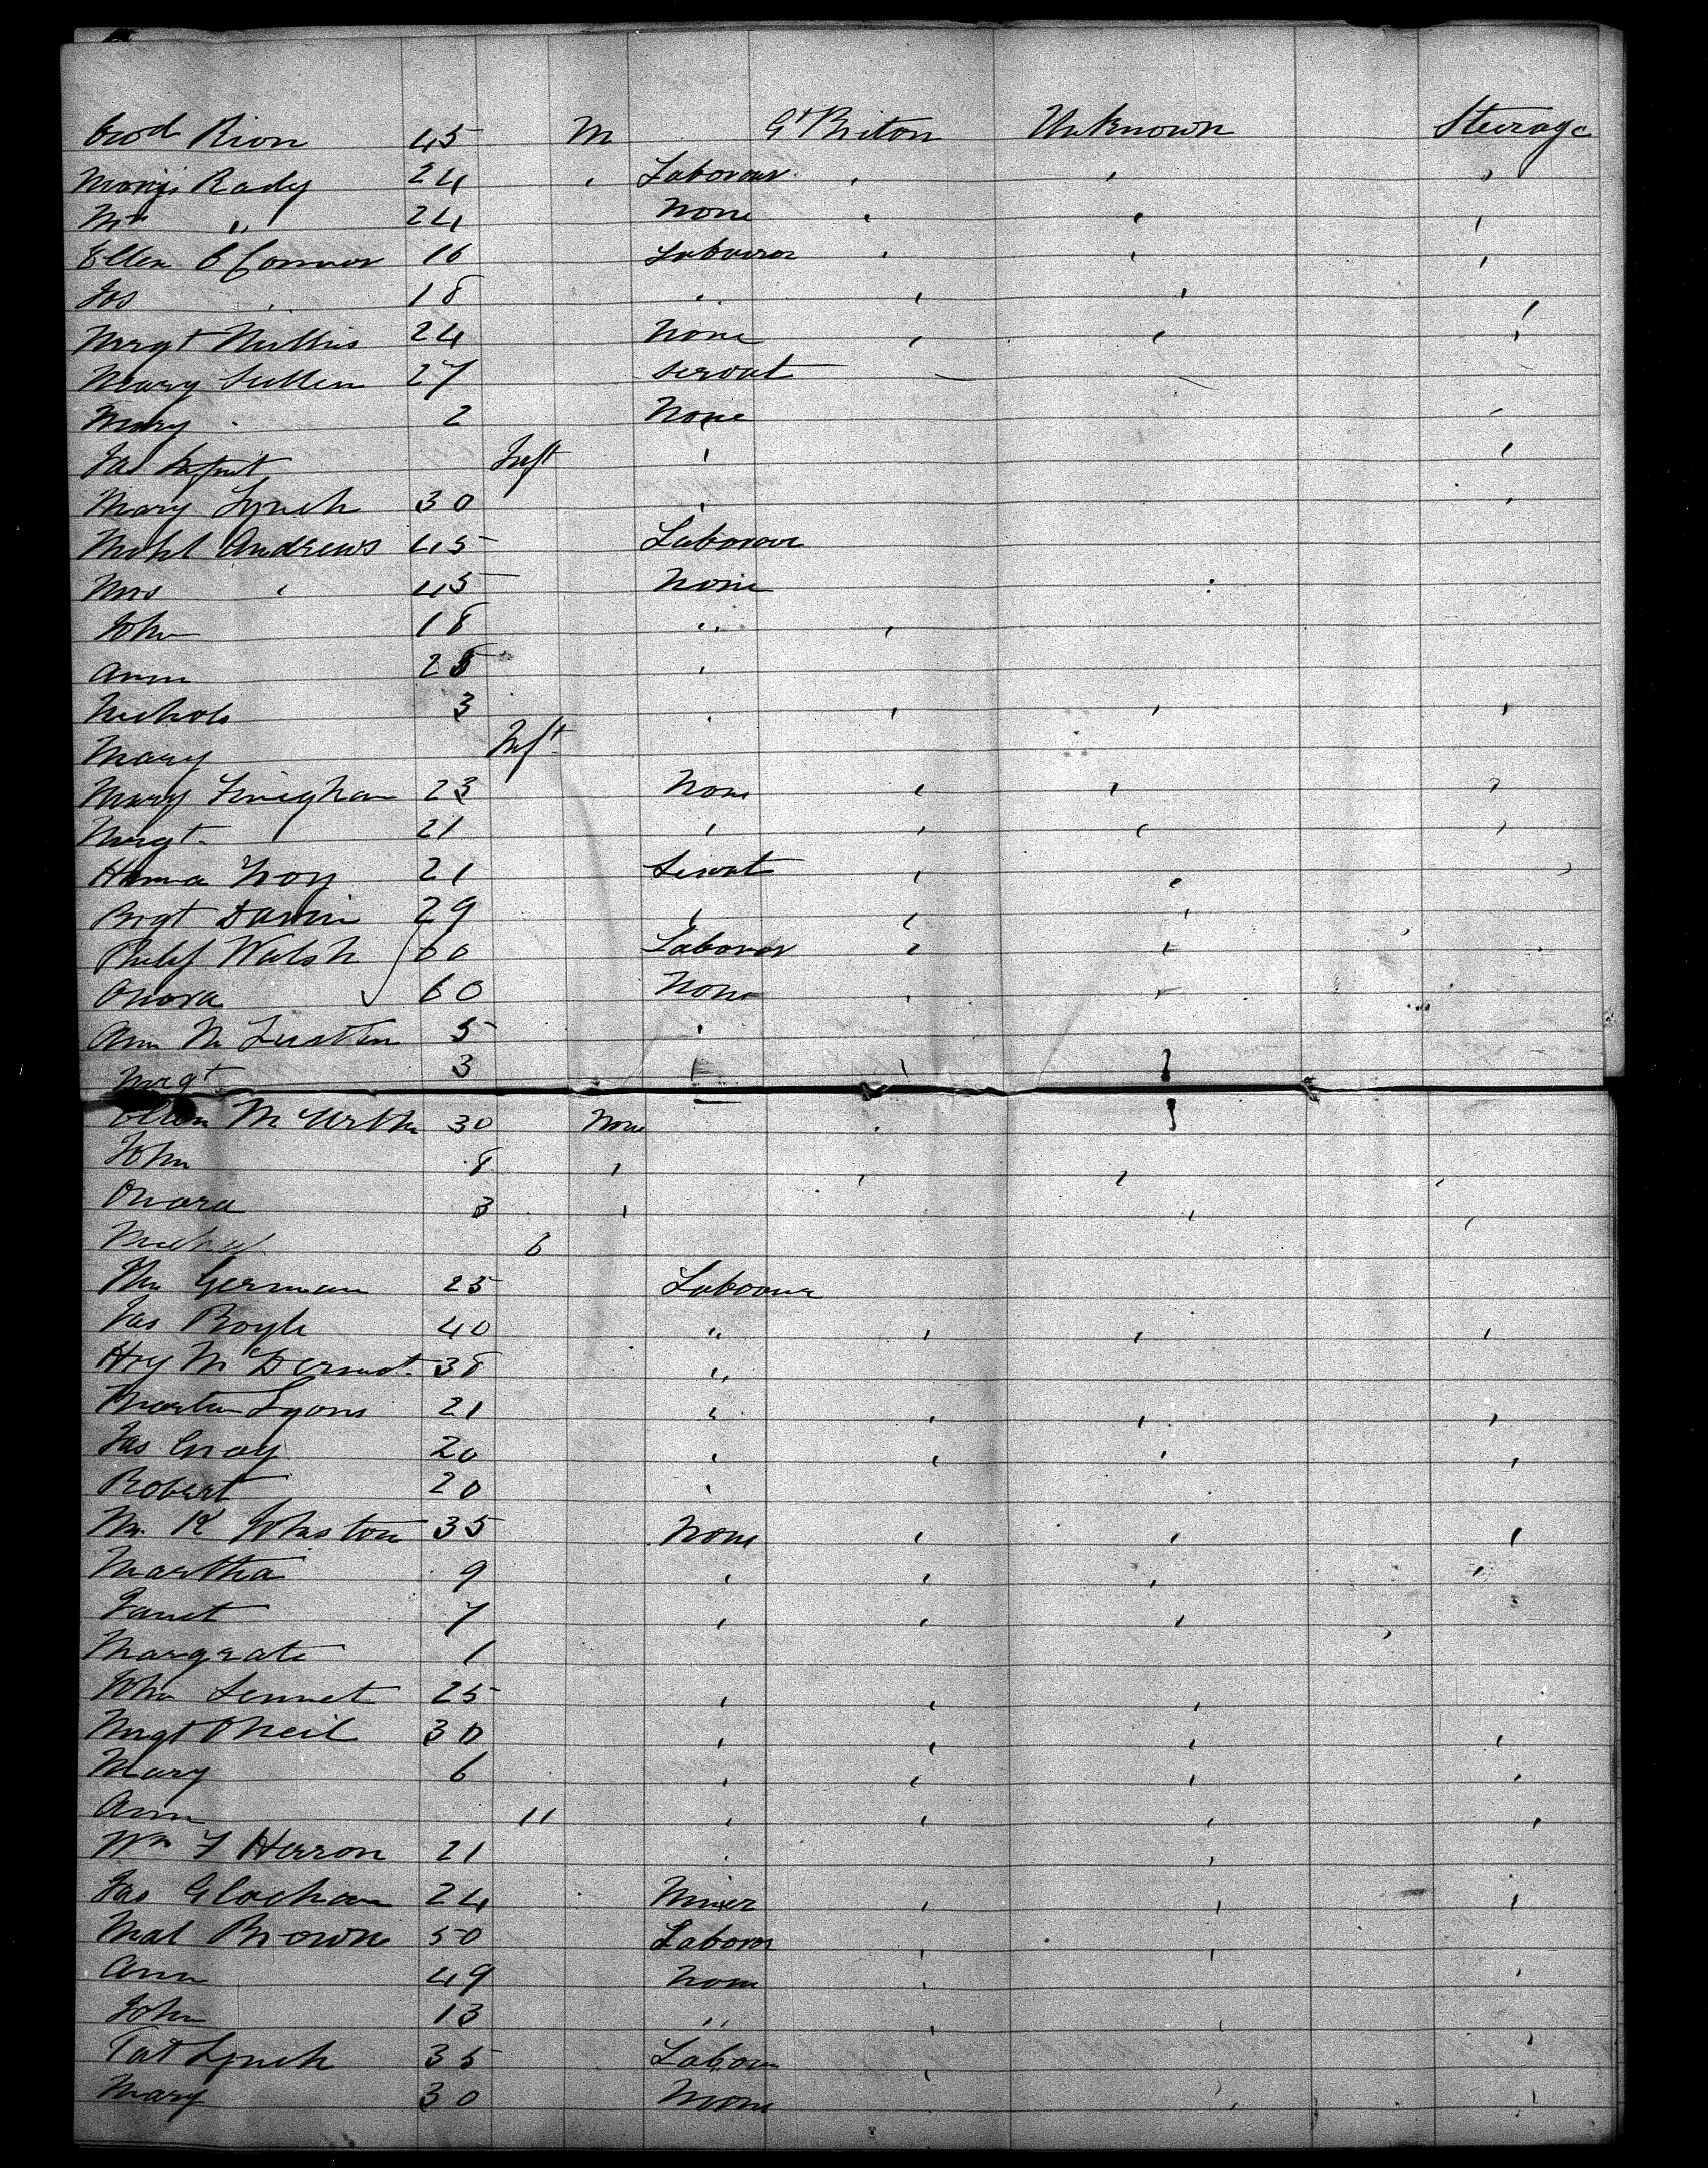 Rion 45 M Gt Briton Unknown Steerage
Rady 24 " Laborour " " "
Mrs " 24 None " " "
Ellen O Connor 16 Laborer " " "
Jos " 18 " " " "
Mrgt 24 None " " "
Mary Sullen 27 servat
Mary " 2 None "
Jas Infnt Inft " "
Mary Lynch 30 " "
Michl Andrews 45 Laborour
Mrs " 45 None "
John 18 " "
Ann 28 "
Nichols 3 " " " "
Mary Inft
Mary Finighan 23 None " " "
Mrgt 21 " " " "
Hanna 21 Servat " " "
Brgt 29 " " "
Philip Walsh 60 Laboror " " "
Onora 60 None " "
Ann Mc 5 "
Mrgt 3 " " "
Ellen Mc 30 None " "
John 8 " " " "
Onora 3 " " "
Michal 6
German 25 Laboour
Jas Boyle 40 " " " "
Hry McDermot 38 "
Martin Lyons 21 " " " "
Jas Gray 20 " " " "
Robert 20 "
Johnston 35 None " " "
Martha 9 " " " "
Janet 7 " " "
Margrate 1
John Sennet 25 " " "
Mrgt O Neil 30 " " " "
Mary 6 " " " "
Ann 11 " " " "
Wm F Herron 21 " "
Jas 24 Miner " " "
Brown 50 Laboror " "
Ann 49 None " "
John 13 " " " "
Pat Lynch 35 Labour "
Mary 30 None " "